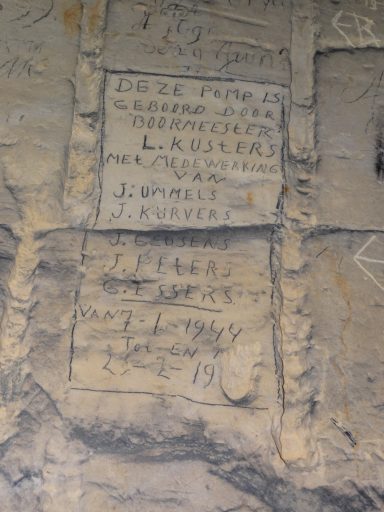 DEZE POMP IS
GEBOORD DOOR
BOORMEESTER
L. KUSTERS
MET MEDEWERKING
VAN
J. UMMELS
J. KÜRVERS
J. GEUSENS
J. PETERS
G. ESSERS
VAN 7-1-1944
TOT EN
2-19